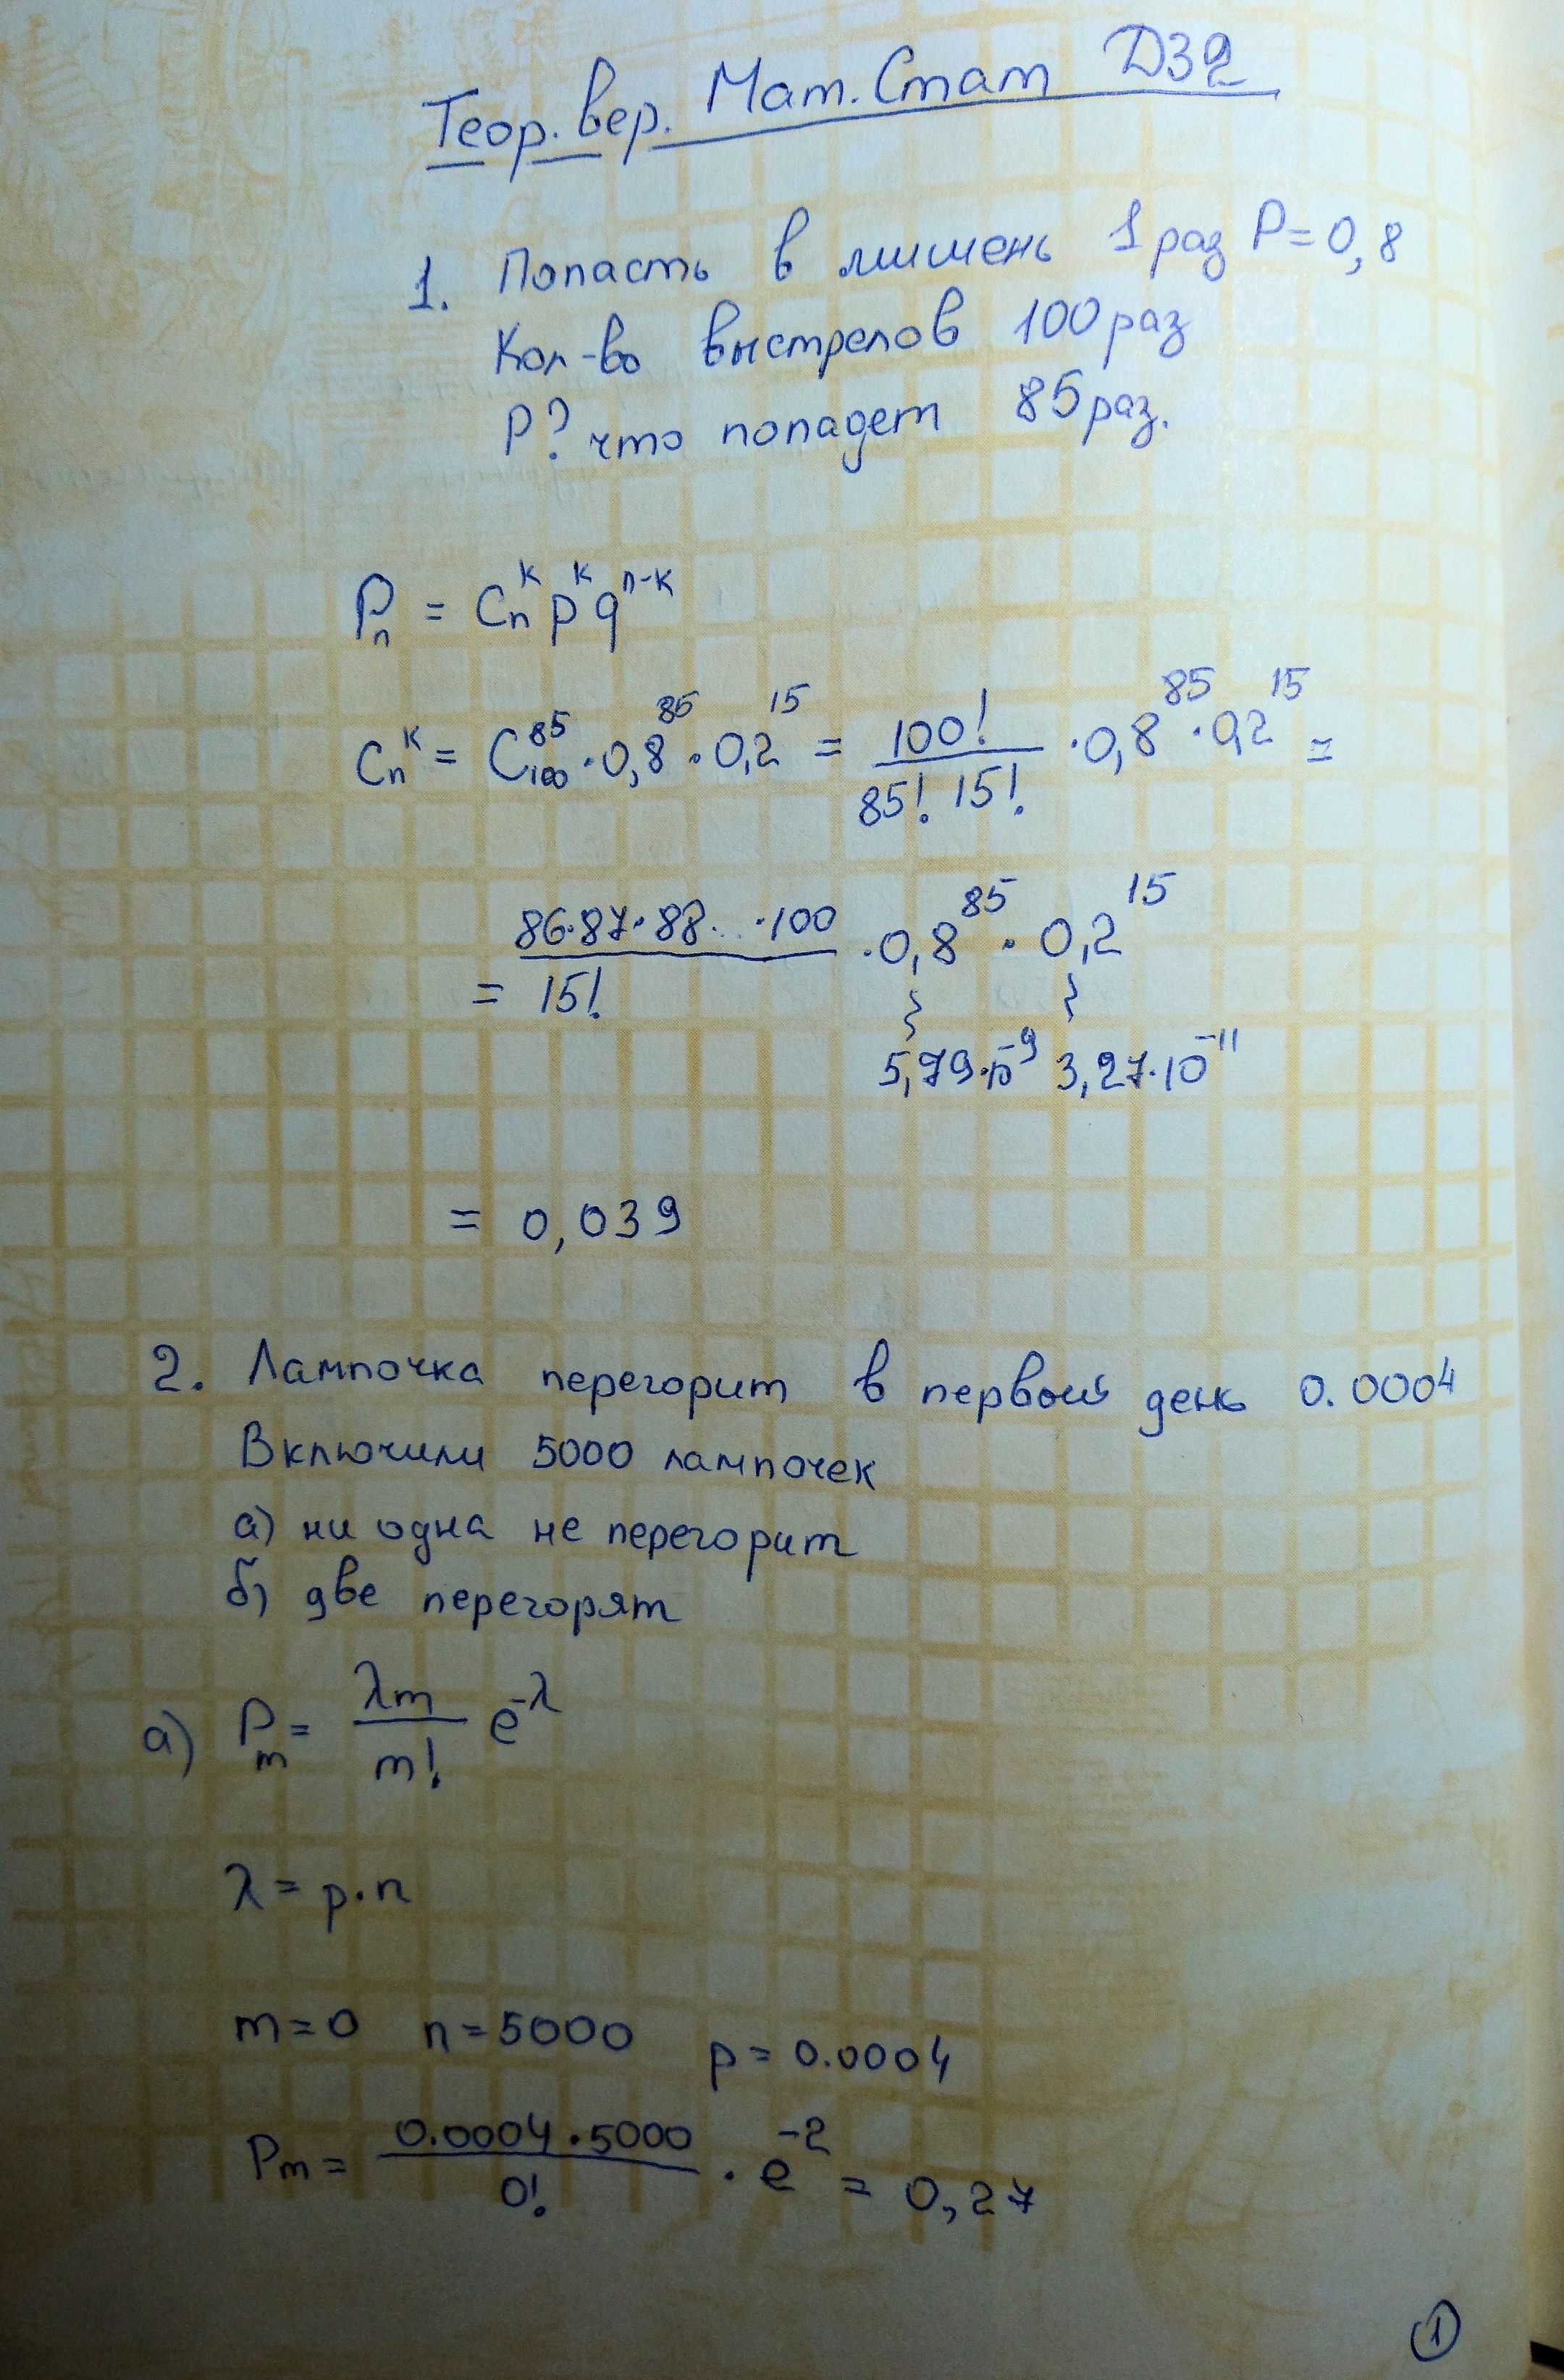 Теор. вер. Мат. Стат ДЗ2
1. Попасть в мишень 1 раз P=0,8
Кол-во выстрелов 100 раз
P? что попадет 85 раз.
Pₙ = Cₙᵏ pᵏ qⁿ⁻ᵏ
Cₙᵏ = C₁₀₀⁸⁵ · 0,8⁸⁵ · 0,2¹⁵ = 100! / 85! 15! · 0,8⁸⁵ · 0,2¹⁵ =
= 86·87·88. .. ·100 / 15! · 0,8⁸⁵ · 0,2¹⁵
5,79·10⁻⁹ 3,27·10⁻¹¹
= 0,039
2. Лампочка перегорит в первый день 0.0004
Включили 5000 лампочек
а) ни одна не перегорит
б) две перегорят
а) Pₘ = λm / m! e^-λ
λ = p·n
m=0 n=5000 p=0.0004
Pm = 0.0004·5000 / 0! · e⁻² = 0,27
1